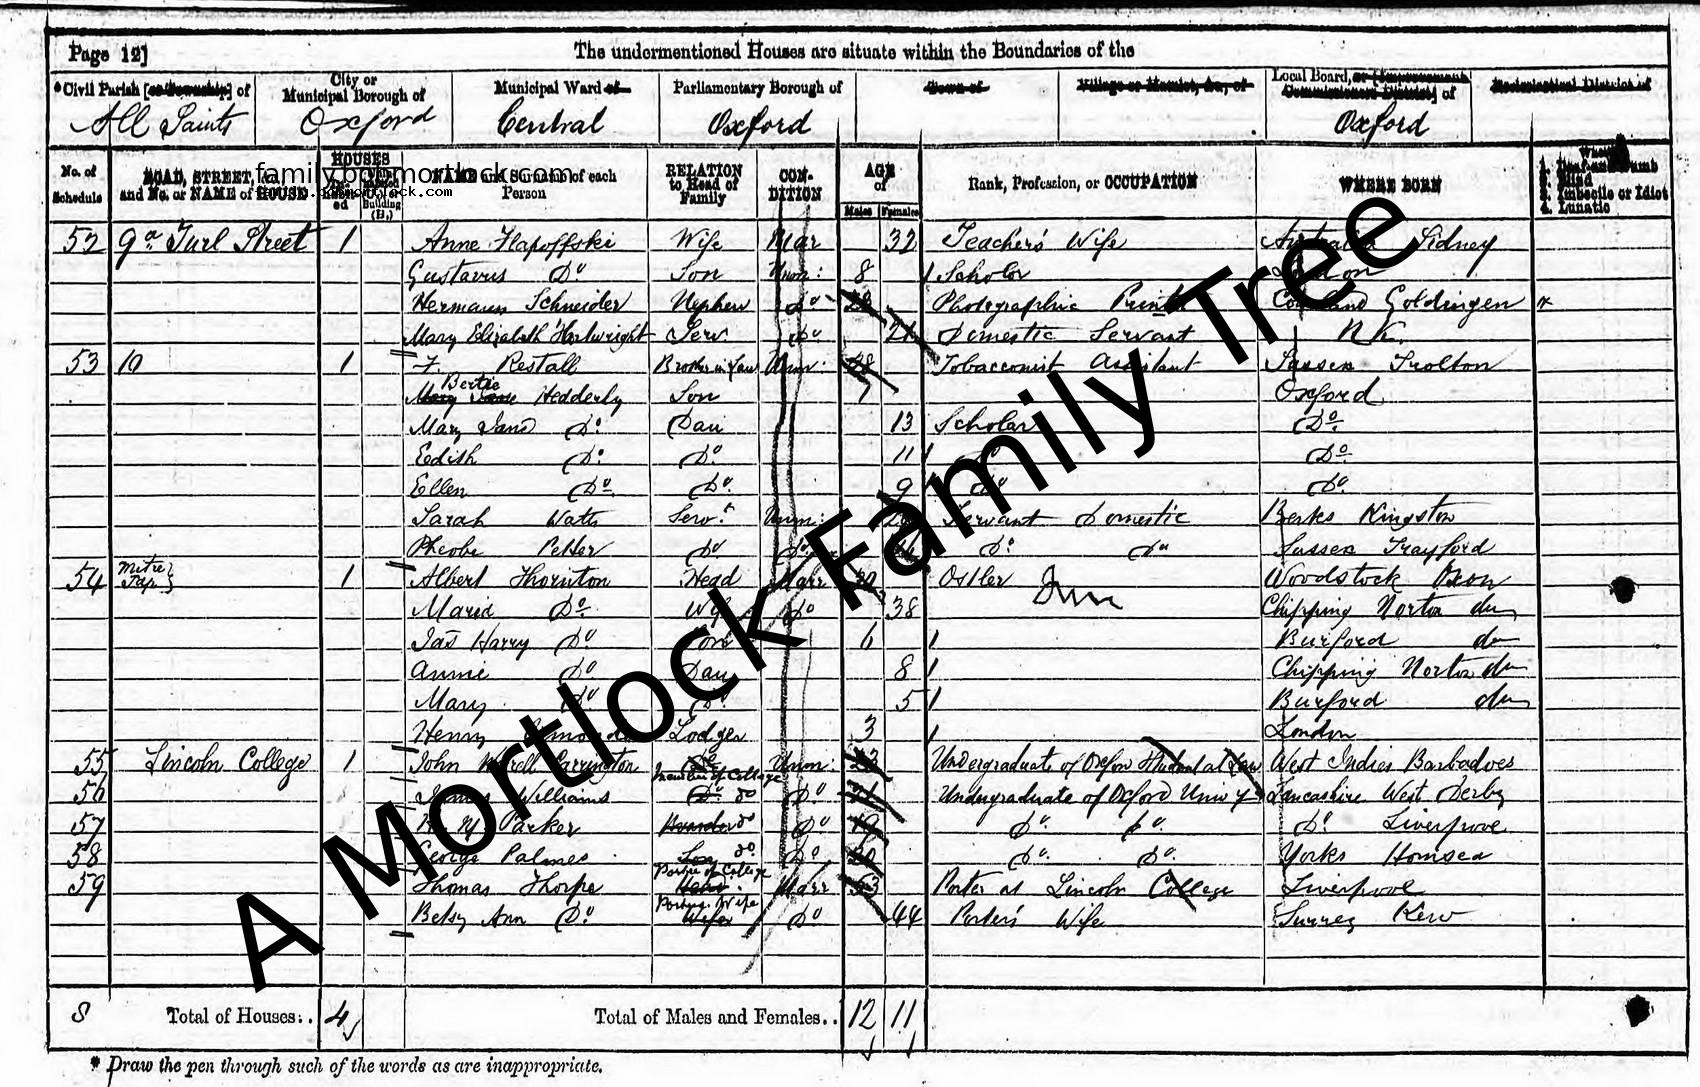 Page 12]
The undermentioned Houses are situate within the Boundaries of the
*Civil Parish [or Township] of
City or Municipal Borough of
Municipal Ward of
Parliamentary Borough of
Town of
Village or Hamlet, &c., of
Local Board, or [Improvement Commissioners District] of
Ecclesiastical District of
All Saints
Oxford
Central
Oxford
Oxford
No. of Schedule
ROAD, STREET, &c., and No. or NAME of HOUSE
HOUSES
NAME and Surname of each Person
RELATION to Head of Family
CON-DITION
AGE of
Males
Females
Rank, Profession, or OCCUPATION
WHERE BORN
1. Deaf-and-Dumb
2. Blind
3. Imbecile or Idiot
4. Lunatic
52 9a Turl Street 1 Anne Flapoffski Wife Mar 32 Teachers' Wife Australia Sidney
Gustavus Do Son Unm: 8 Scholar London
Hermann Schneider Nephew Do Photographic Printer Goldingen
Mary Elizabeth Hartwright Serv. Do 21 Domestic Servant N.K.
53 10 1 F. Restall Brother in Law Unm: 38 Tobacconist Assistant Sussex Trolton
Bertie Hedderly Son 7 Oxford
Mary Jane Do Dau 13 Scholar Do
Edith Do Do 11 Do
Ellen Do Do 9 Do Do
Sarah Watts Servt Unm: Servant Domestic Berks Kingston
Pheobe Petter Do Do Do Do Sussex Trayford
54 Mitre Tap 1 Albert Thornton Head Marr Ostler Inn Woodstock Oxon
Maria Do Wife Do 38 Chipping Norton do
Jas Harry Do Son 6 Burford do
Annie Do Dau 8 Chipping Norton do
Mary Do Do 5 Burford do
Henry Lodger 3 London
55 Lincoln College 1 John Carrington Member of College Unm: 23 Undergraduate of Oxfon Student at Law West Indies Barbadoes
56 James Williams Do do Do 21 Undergraduate of Oxford Univy Lancashire West Derby
57 Parker Boarder do Do 19 Do Do Do Liverpool
58 George Palmes Son do Do 20 Do Do Yorks Hornsea
59 Thomas Thorpe Porter of College Head Marr 53 Porter at Lincoln College Liverpool
Betsy Ann Do Porters Wife Wife Do 44 Porter's Wife Surrey Kew
8 Total of Houses.. 4 Total of Males and Females.. 12 11
* Draw the pen through such of the words as are inappropriate.
A Mortlock Family Tree